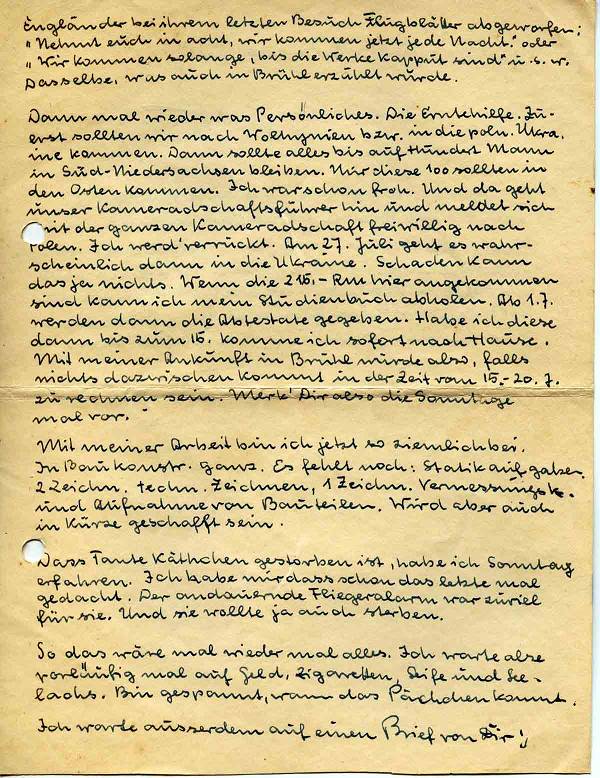 Engländer bei ihrem letzten Besuch Flugblätter abgeworfen:
„Nehmt euch in acht, wir kommen jetzt jede Nacht." oder
„Wir kommen solange, bis die Werke kapput sind" u. s. w.
Dasselbe, was auch in Brühl erzählt wurde.
Dann mal wieder was Persönliches. Die Erntehilfe. Zu-
erst sollten wir nach Wolhynien bzw. in die poln. Ukra.
ine kommen. Dann sollte alles bis auf Hundert Mann
in Süd-Niedersachsen bleiben. Nur diese 100 sollten in
den Osten kommen. Ich war schon froh. Und da geht
unser Kameradschaftsführer hin und meldet sich
mit der ganzen Kameradschaft freiwillig nach
Polen. Ich werd' verrückt. Am 27. Juli geht es wahr-
scheinlich dann in die Ukraine. Schaden kann
das ja nichts. Wenn die 216.- RM hier angekommen
sind kann ich mein Studienbuch abholen. Ab 1.7.
werden dann die Abtestate gegeben. Habe ich diese
dann bis zum 15. komme ich sofort nach Hause.
Mit meiner Ankunft in Brühl würde also, falls
nichts dazwischen kommt in der Zeit vom 15.-20.7.
zu rechnen sein. Merk' Dir also die Sonntage
mal vor.
Mit meiner Arbeit bin ich jetzt so ziemlich bei.
In Baukonstr. ganz. Es fehlt noch: Statikaufgaben
2 Zeichn. techn. Zeichnen, 1 Zeichn. Vermessungsk.
und Aufnahme von Bauteilen. Wird aber auch
in Kürze geschafft sein.
Dass Tante Käthchen gestorben ist, habe ich Sonntag
erfahren. Ich habe mir dass schon das letzte mal
gedacht. Der andauernde Fliegeralarm war zuviel
für sie. Und sie wollte ja auch sterben.
So das wäre mal wieder mal alles. Ich warte also
vorläufig mal auf Geld, Zigaretten, Seife und See-
lachs. Bin gespannt, wann das Päckchen kommt.
Ich warte ausserdem auf einen Brief von Dir!